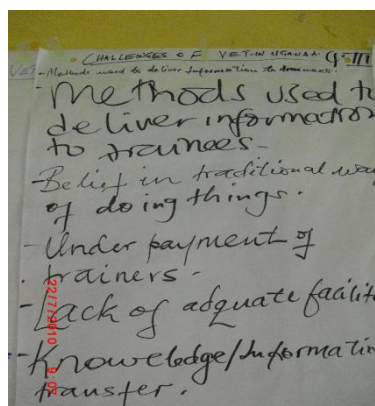 CHALLENGES OF VET IN UGANDA G-III
VE
- Methods used to deliver Information to trainees.
- Methods used to
deliver information
to trainees -
- Belief in traditional way
of doing things.
- Under payment of
trainers -
- Lack of adquate facilit
- Knowledge/Informatio
transfer.
22/7/2010 9:02